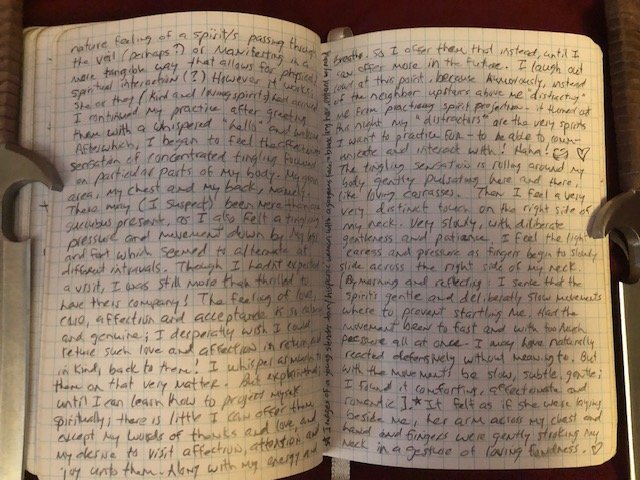 nature feeling of a spirit/s passing through
the veil (perhaps?) or manifesting in a
more tangible way that allows for physical/
spiritual interaction (?) However it works,
she or they (kind and loving spirits) had arrived
I continued my practice after greeting
them with a whispered "hello" and
Afterwhich, I began to feel the
sensation of concentrated tingling focused
on particular parts of my body. My groin
area, my chest and my back, namely.
There may (I suspect) been more than one
succubus present, as I also felt a tingling
pressure and movement down by my legs
and feet which seemed to alternate at
different intervals. Though I hadn't expected
a visit, I was still more than thrilled to
have their company! The feeling of love,
care, affection and acceptance is so
and genuine; I desperatly wish I could
return such love and affection in return, and
in kind, back to them! I whisper as much to
them on that very matter. But explain that
until I can learn how to project myself
spiritually; there is little I can offer them
except my words of thanks and love, and
my desire to visit affection, attention, and
joy unto them. Along with my energy and
breathe. So I offer them that instead, until I
can offer more in the future. I laugh out
loud at this point, because humorously, instead
of the neighbor upstairs above me "distracting"
me from practicing spirit projection - it turned out
this night my "distractors" are the very spirits
I want to practice for - to be able to comm-
unicate and interact with! Haha! ♡
The tingling sensation is rolling around my
body gently pulsating here and there,
like loving carrasses. Then I feel a very
very distinct touch on the right side of
my neck. Very slowly, with deliberate
gentleness and patiance, I feel the light
caress and pressure as finger begin to slowly
slide across the right side of my neck.
[By musing and reflecting; I sense that the
spirits gentle and deliberatly slow movements
where to prevent startling me. Had the
movement been to fast and with too much
pressure all at once - I may have naturally
reacted defensively without meaning to. But
with the movements be slow, subtle, gentle;
I found it comforting, affectionate and
romantic].* It felt as if she were laying
beside me, her arm across my chest and
hand and fingers were gently stroking my
neck in a gesture of loving fondness. ♡